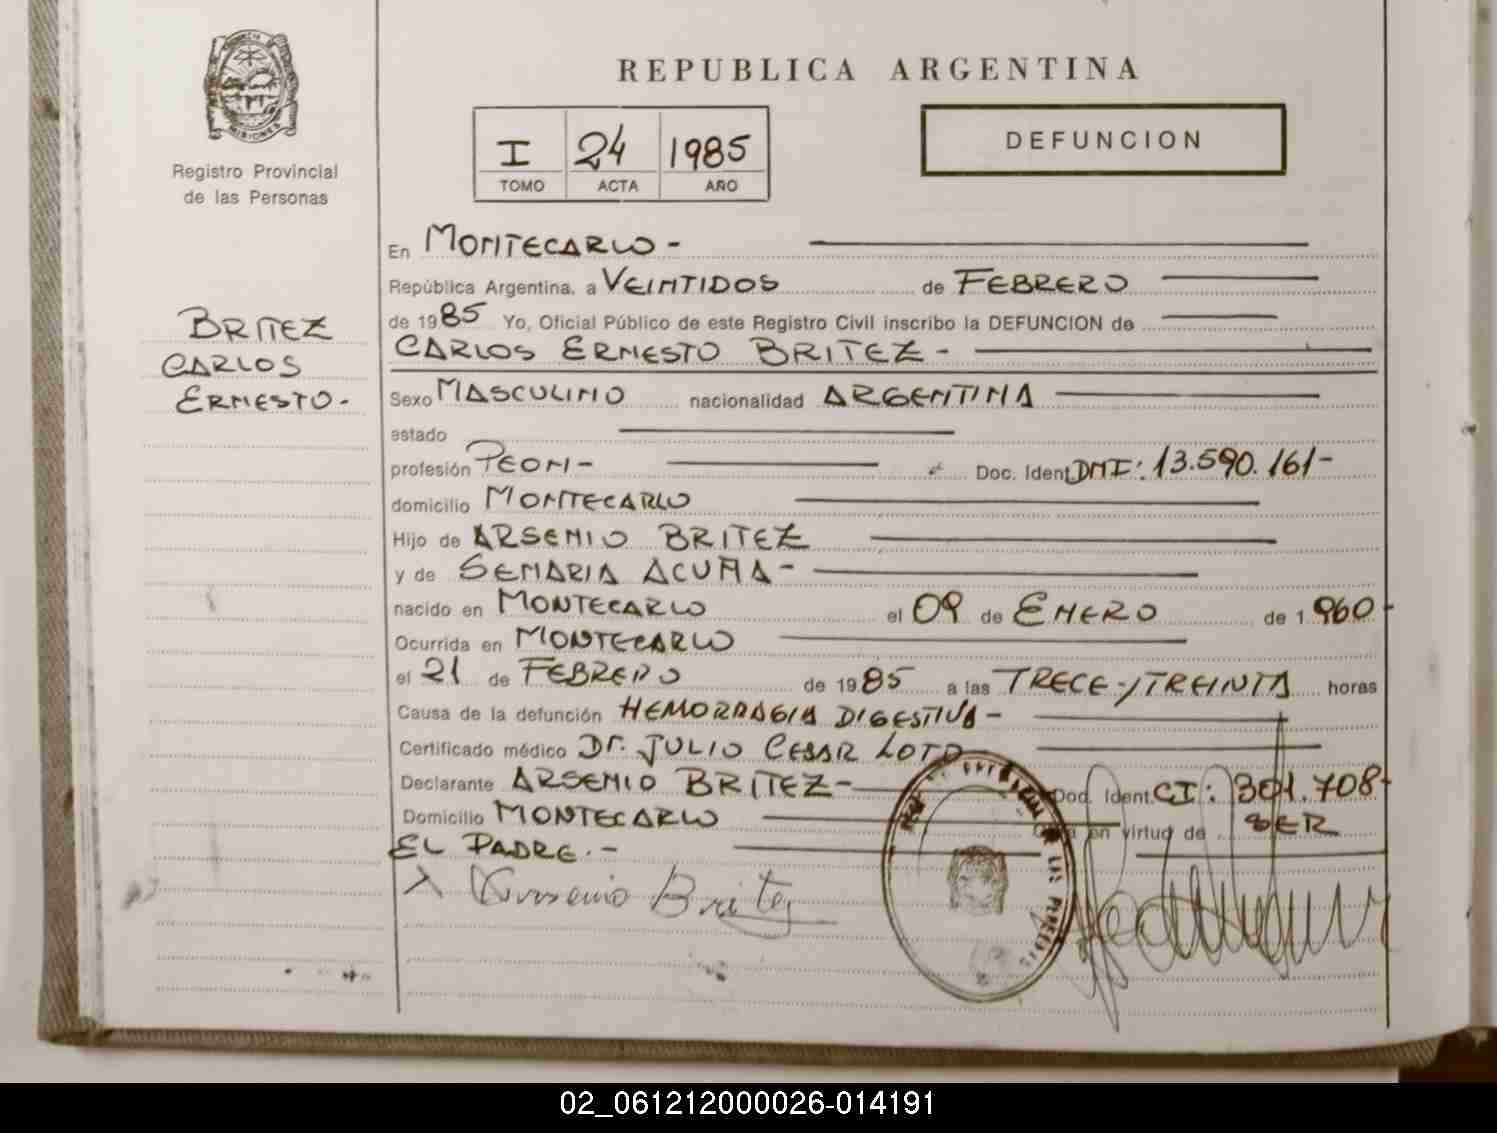 REPUBLICA ARGENTINA
MISIONES
Registro Provincial
de las Personas
I 24 1985
TOMO ACTA AÑO
DEFUNCION
BRITEZ
CARLOS
ERNESTO.-
En MONTECARLO -
República Argentina, a VEINTIDOS de FEBRERO
de 1985 Yo, Oficial Público de este Registro Civil inscribo la DEFUNCION de
CARLOS ERNESTO BRITEZ -
Sexo MASCULINO nacionalidad ARGENTINA
estado
profesión PEON - Doc. Ident. DNI: 13.590.161-
domicilio MONTECARLO
Hijo de ARSENIO BRITEZ
y de GENARIA ACUÑA -
nacido en MONTECARLO el 09 de ENERO de 1.960-
Ocurrida en MONTECARLO
el 21 de FEBRERO de 1985 a las TRECE-Y TREINTA horas
Causa de la defunción HEMORRAGIA DIGESTIVA -
Certificado médico Dr. JULIO CESAR LOTO
Declarante ARSENIO BRITEZ - Doc. Ident. CI: 301.708-
Domicilio MONTECARLO Obra en virtud de SER
EL PADRE.-
X Arsenio Britez
DE LAS PERSONAS
02_061212000026-014191